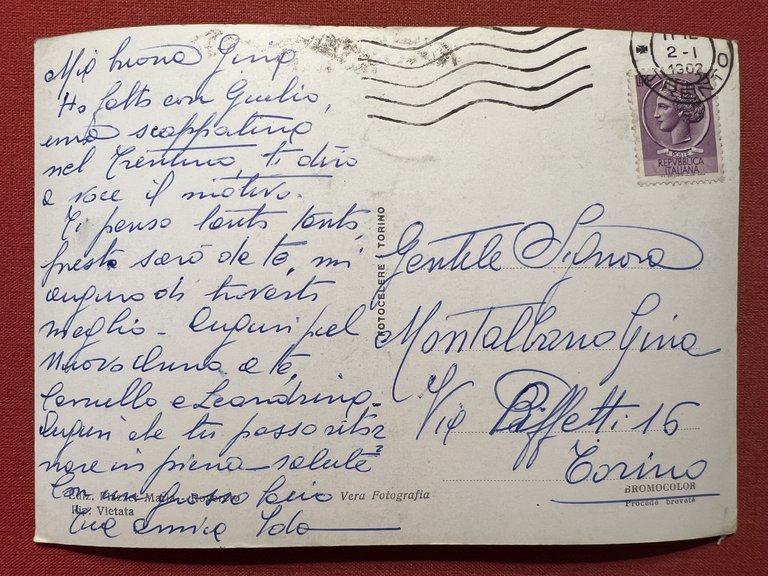 Mia buona Gina
Ho fatto con Giulio,
una scappatina
nel Trentino, ti dirò
a voce il motivo.
Ti penso tanto tanto,
presto sarò da te, mi
auguro di trovarti
meglio - Auguri pel
Nuovo Anno a te,
Carmello e Leandrina -
Auguri che tu possa ritor
nare in piena salute
Con un grosso bacio
Tua amica Ida
Ediz. Maria - Rovereto
Rip. Vietata
Vera Fotografia
FOTOCELERE TORINO
2-1
POSTE
REPVBBLICA
ITALIANA
Gentile Signora
Montalbano Gina
Via Piffetti 16
Torino
BROMOCOLOR
Procédé breveté